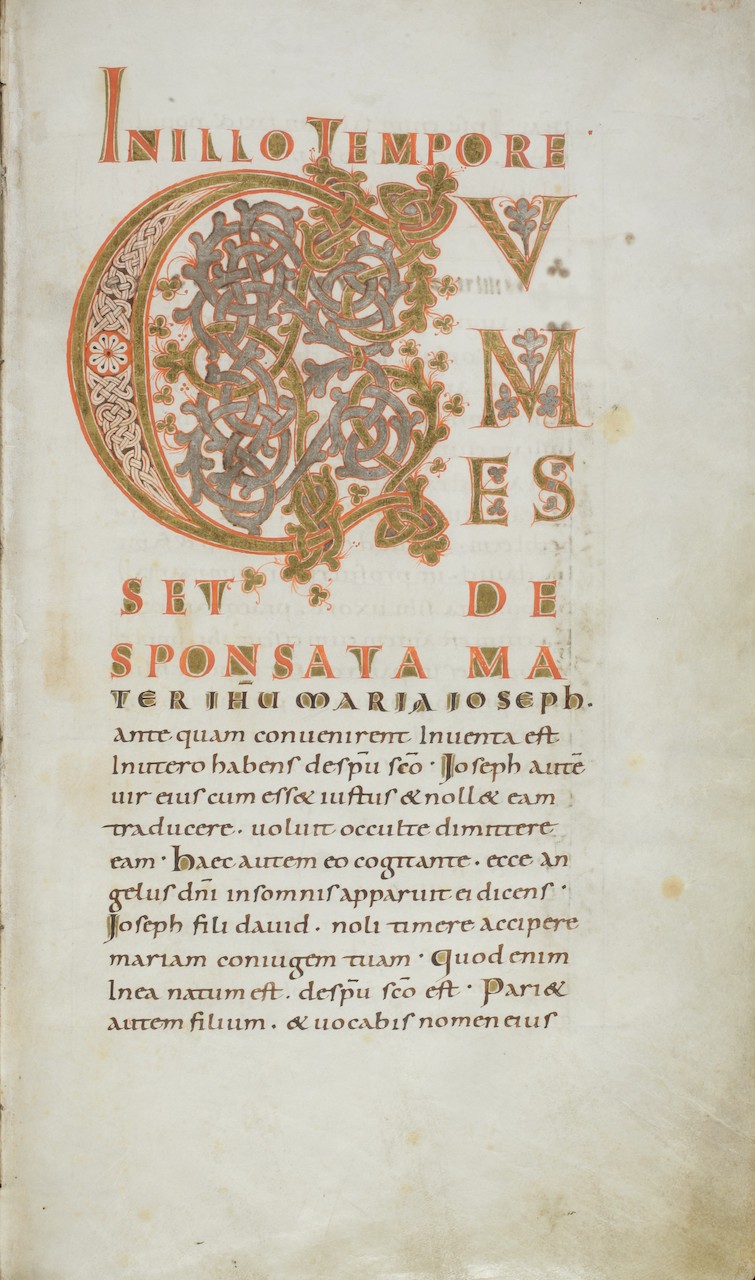 IN ILLO TEMPORE
C V
M
ES
SET DE
SPONSATA MA
TER IHŪ MARIA IOSEPH.
Ante quam conuenirent Inuenta est
In utero habens despū scō · Joseph autē
uir eius cum ess& iustus & noll& eam
traducere . uoluit occulte dimittere
eam · haec autem eo cogitante . ecce an
gelus dn̄i in somnis apparuit ei dicens ·
Joseph fili dauid . noli timere accipere
mariam coniugem tuam · Quod enim
In ea natum est . despū scō est · Pari&
autem filium . & uocabis nomen eius